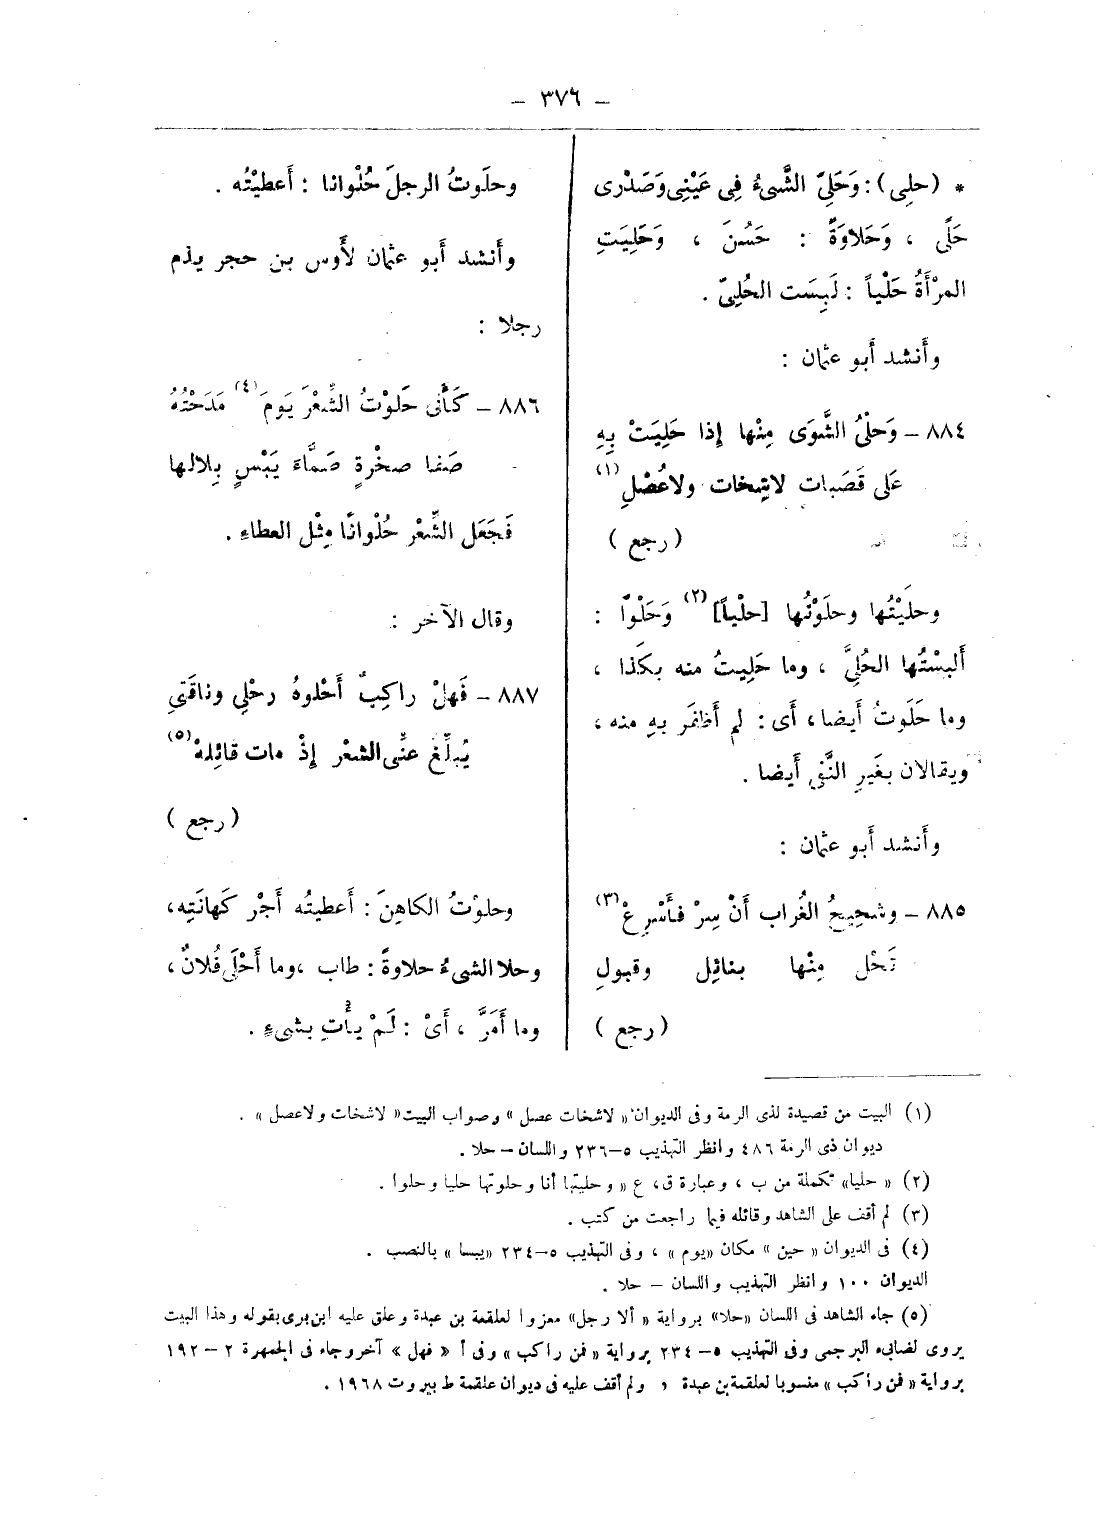 – ٣٧٦ –
* (حلِى): وَحَلِىَ الشَّىءُ فِى عَيْنِى وَصَدْرِى
حَلًى ، وَحَلاوَةً : حَسُنَ ، وَحَلِيَتِ
المرْأَةُ حَلْياً : لَبِسَت الحُلِىّ .
وأَنشد أَبو عثمان :
٨٨٤ – وَحَلْىُ الشَّوَى مِنْها إذا حَلِيَتْ بِهِ
عَلى قَصَبات لاشِخات ولاعُصْلِ (١)
( رجع )
وحلَيْتُها وحلَوْتُها [حلْياً] (٢) وَحَلْوًا :
أَلبسْتُها الحُلِىَّ ، وما حَلِيتُ منه بكَذا ،
وما حَلَوتُ أَيضا ، أَى : لم أَظفَر بِهِ منه ،
ويقالان بغَيرِ النَّفْىِ أَيضا .
وأَنشد أَبو عثمان :
٨٨٥ – وشحِيجُ الغُراب أَنْ سِرْ فأَسْرِعْ (٣)
تَحْل مِنْها بنائِل وقبولِ
( رجع )
وحلَوتُ الرجلَ حُلْوانا : أَعطيْتُه .
وأَنشد أَبو عثمان لأَوس بن حجر يذم
رجلا :
٨٨٦ – كَأَنى حَلوْتُ الشِّعْرَ يَومَ (٤) مَدَحْتُهُ
صَفا صخْرةٍ صَمَّاءَ يَبْسٍ بِلالها
فَجَعَل الشِّعْر حُلْوانًا مِثْل العطاءِ .
وقال الآخر :
٨٨٧ – فَهلْ راكِبٌ أَحْلوهُ رحْلِى وناقَتِى
يُبلِّغ عنِّى الشعْر إِذْ مات قائِلهْ (٥)
( رجع )
وحلوْتُ الكاهِنَ : أَعطيتُه أَجْر كَهانَتِه ،
وحلا الشىءُ حلاوةً : طاب ، وما أَحْلَى فُلانٌ ،
وما أَمَرَّ ، أَىْ : لَمْ يأْتِ بشىءٍ .
(١) البيت من قصيدة لذى الرمة وفى الديوان «لاشخات عصل» وصواب البيت «لاشخات ولاعصل» .
ديوان ذى الرمة ٤٨٦ وانظر التهذيب ٥–٢٣٦ واللسان – حلا .
(٢) «حليا» تكملة من ب ، وعبارة ق، ع «وحليتها أنا وحلوتها حليا وحلوا .
(٣) لم أقف على الشاهد وقائله فيما راجعت من كتب .
(٤) فى الديوان «حين» مكان «يوم» ، وفى التهذيب ٥–٢٣٤ «يبسا» بالنصب .
الديوان ١٠٠ وانظر التهذيب واللسان – حلا .
(٥) جاء الشاهد فى اللسان «حلا» برواية «ألا رجل» معزوا لعلقمة بن عبدة وعلق عليه ابن برى بقوله وهذا البيت
يروى لضابىء البرجمى وفى التهذيب ٥–٢٣٤ برواية «فمن راكب» وفى أ «فهل» آخر وجاء فى الجمهرة ٢–١٩٢
برواية «فمن راكب» منسوبا لعلقمة بن عبدة ، ولم أقف عليه فى ديوان علقمة ط بيروت ١٩٦٨ .